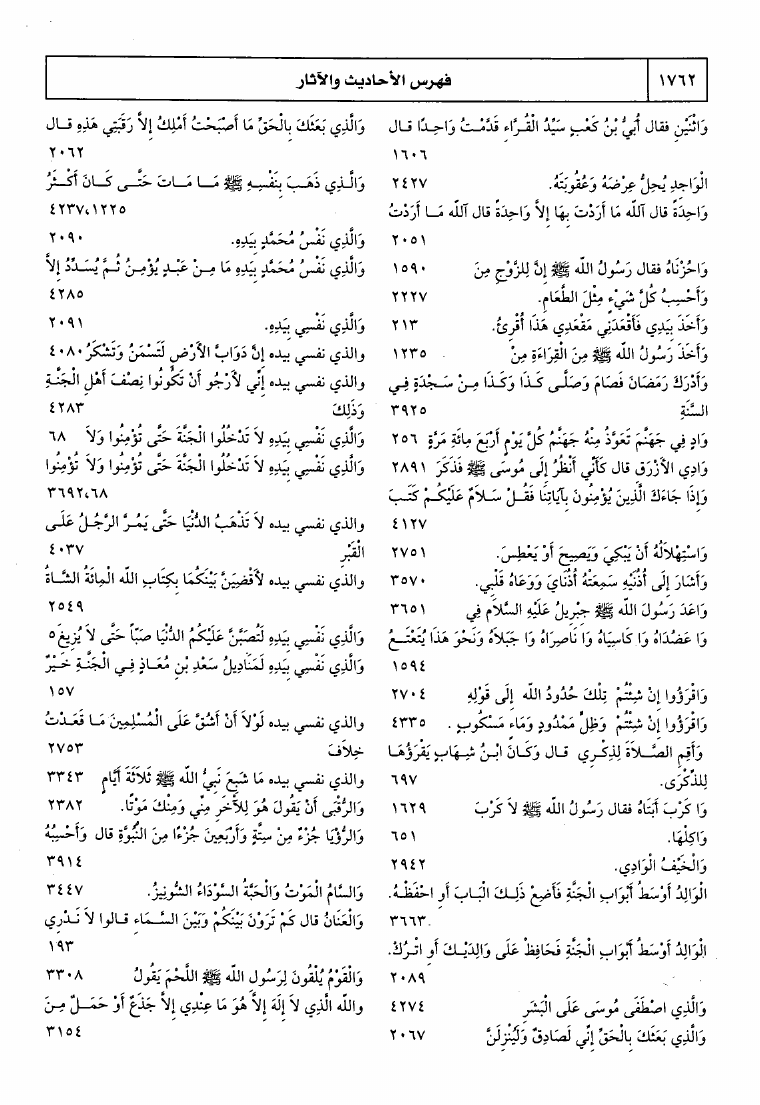 ١٧٦٢
فهرس الأحاديث والآثار
وَاثْنَيْنِ فقال أُبَيُّ بْنُ كَعْبٍ سَيِّدُ الْقُرَّاءِ قَدَّمْتُ وَاحِدًا قال
١٦٠٦
الْوَاجِدِ يُحِلُّ عِرْضَهُ وَعُقُوبَتَهُ. ٢٤٢٧
وَاحِدَةً قال آللّه مَا أَرَدْتَ بِهَا إِلاَّ وَاحِدَةً قال آللّه مَا أَرَدْتُ
٢٠٥١
وَاحُزْنَاهُ فقال رَسُولُ اللّه ﷺ إِنَّ لِلزَّوْجِ مِنَ ١٥٩٠
وَأَحْسِبُ كُلَّ شَيْءٍ مِثْلَ الطَّعَامِ. ٢٢٢٧
وَأَخَذَ بِيَدِي فَأَقْعَدَنِي مَقْعَدِي هَذَا أُقْرِئُ. ٢١٣
وَأَخَذَ رَسُولُ اللّه ﷺ مِنَ الْقِرَاءَةِ مِنْ ١٢٣٥
وَأَدْرَكَ رَمَضَانَ فَصَامَ وَصَلَّى كَذَا وَكَذَا مِنْ سَجْدَةٍ فِي
السَّنَةِ ٣٩٢٥
وَادٍ فِي جَهَنَّمَ تَعَوَّذُ مِنْهُ جَهَنَّمُ كُلَّ يَوْمٍ أَرْبَعَ مِائَةِ مَرَّةٍ ٢٥٦
وَادِي الأَزْرَقِ قال كَأَنِّي أَنْظُرُ إِلَى مُوسَى ﷺ فَذَكَرَ ٢٨٩١
وَإِذَا جَاءَكَ الَّذِينَ يُؤْمِنُونَ بِآيَاتِنَا فَقُلْ سَلاَمٌ عَلَيْكُمْ كَتَبَ
٤١٢٧
وَاسْتِهْلاَلُهُ أَنْ يَبْكِيَ وَيَصِيحَ أَوْ يَعْطِسَ. ٢٧٥١
وَأَشَارَ إِلَى أُذُنَيْهِ سَمِعَتْهُ أُذُنَايَ وَوَعَاهُ قَلْبِي. ٣٥٧٠
وَاعَدَ رَسُولَ اللّه ﷺ جِبْرِيلُ عَلَيْهِ السَّلاَم فِي ٣٦٥١
وَا عَضُدَاهُ وَا كَاسِيَاهُ وَا نَاصِرَاهُ وَا جَبَلاَهُ وَنَحْوَ هَذَا يُتَعْتَعُ
١٥٩٤
وَاقْرَؤُوا إِنْ شِئْتُمْ تِلْكَ حُدُودُ اللّه إِلَى قَوْلِهِ ٢٧٠٤
وَاقْرَؤُوا إِنْ شِئْتُمْ وَظِلٍّ مَمْدُودٍ وَمَاءٍ مَسْكُوبٍ. ٤٣٣٥
وَأَقِمِ الصَّلاَةَ لِذِكْرِي قال وَكَانَ ابْنُ شِهَابٍ يَقْرَؤُهَا
لِلذِّكْرَى. ٦٩٧
وَا كَرْبَ أَبَتَاهُ فقال رَسُولُ اللّه ﷺ لاَ كَرْبَ ١٦٢٩
وَاكِلْهَا. ٦٥١
وَالْخَيْفُ الْوَادِي. ٢٩٤٢
الْوَالِدُ أَوْسَطُ أَبْوَابِ الْجَنَّةِ فَأَضِعْ ذَلِكَ الْبَابَ أَوِ احْفَظْهُ.
٣٦٦٣
الْوَالِدُ أَوْسَطُ أَبْوَابِ الْجَنَّةِ فَحَافِظْ عَلَى وَالِدَيْكَ أَوِ اتْرُكْ.
٢٠٨٩
وَالَّذِي اصْطَفَى مُوسَى عَلَى الْبَشَرِ ٤٢٧٤
وَالَّذِي بَعَثَكَ بِالْحَقِّ إِنِّي لَصَادِقٌ وَلَيُنْزِلَنَّ ٢٠٦٧
وَالَّذِي بَعَثَكَ بِالْحَقِّ مَا أَصْبَحْتُ أَمْلِكُ إِلاَّ رَقَبَتِي هَذِهِ قال
٢٠٦٢
وَالَّذِي ذَهَبَ بِنَفْسِهِ ﷺ مَا مَاتَ حَتَّى كَانَ أَكْثَرُ
٤٢٣٧،١٢٢٥
وَالَّذِي نَفْسُ مُحَمَّدٍ بِيَدِهِ. ٢٠٩٠
وَالَّذِي نَفْسُ مُحَمَّدٍ بِيَدِهِ مَا مِنْ عَبْدٍ يُؤْمِنُ ثُمَّ يُسَدِّدُ إِلاَّ
٤٢٨٥
وَالَّذِي نَفْسِي بِيَدِهِ. ٢٠٩١
والذي نفسي بيده إِنَّ دَوَابَّ الأَرْضِ لَتَسْمَنُ وَتَشْكَرُ ٤٠٨٠
والذي نفسي بيده إِنِّي لأَرْجُو أَنْ تَكُونُوا نِصْفَ أَهْلِ الْجَنَّةِ
وَذَلِكَ ٤٢٨٣
وَالَّذِي نَفْسِي بِيَدِهِ لاَ تَدْخُلُوا الْجَنَّةَ حَتَّى تُؤْمِنُوا وَلاَ ٦٨
وَالَّذِي نَفْسِي بِيَدِهِ لاَ تَدْخُلُوا الْجَنَّةَ حَتَّى تُؤْمِنُوا وَلاَ تُؤْمِنُوا
٣٦٩٢،٦٨
والذي نفسي بيده لاَ تَذْهَبُ الدُّنْيَا حَتَّى يَمُرَّ الرَّجُلُ عَلَى
الْقَبْرِ ٤٠٣٧
والذي نفسي بيده لأَقْضِيَنَّ بَيْنَكُمَا بِكِتَابِ اللّه الْمِائَةُ الشَّاةُ
٢٥٤٩
وَالَّذِي نَفْسِي بِيَدِهِ لَتُصَبَّنَّ عَلَيْكُمُ الدُّنْيَا صَبًّا حَتَّى لاَ يُزِيغَ ٥
وَالَّذِي نَفْسِي بِيَدِهِ لَمَنَادِيلُ سَعْدِ بْنِ مُعَاذٍ فِي الْجَنَّةِ خَيْرٌ
١٥٧
والذي نفسي بيده لَوْلاَ أَنْ أَشُقَّ عَلَى الْمُسْلِمِينَ مَا قَعَدْتُ
خِلاَفَ ٢٧٥٣
والذي نفسي بيده مَا شَبِعَ نَبِيُّ اللّه ﷺ ثَلاَثَةَ أَيَّامٍ ٣٣٤٣
وَالرُّقْبَى أَنْ يَقُولَ هُوَ لِلآخَرِ مِنِّي وَمِنْكَ مَوْتًا. ٢٣٨٢
وَالرُّؤْيَا جُزْءٌ مِنْ سِتَّةٍ وَأَرْبَعِينَ جُزْءًا مِنَ النُّبُوَّةِ قال وَأَحْسِبُهُ
٣٩١٤
وَالسَّامُ الْمَوْتُ وَالْحَبَّةُ السَّوْدَاءُ الشُّونِيزُ. ٣٤٤٧
وَالْعَنَانُ قال كَمْ تَرَوْنَ بَيْنَكُمْ وَبَيْنَ السَّمَاءِ قالوا لاَ نَدْرِي
١٩٣
وَالْقَوْمُ يُلْقُونَ لِرَسُولِ اللّه ﷺ اللَّحْمَ يَقُولُ ٣٣٠٨
واللّه الَّذِي لاَ إِلَهَ إِلاَّ هُوَ مَا عِنْدِي إِلاَّ جَذَعٌ أَوْ حَمَلٌ مِنَ
٣١٥٤